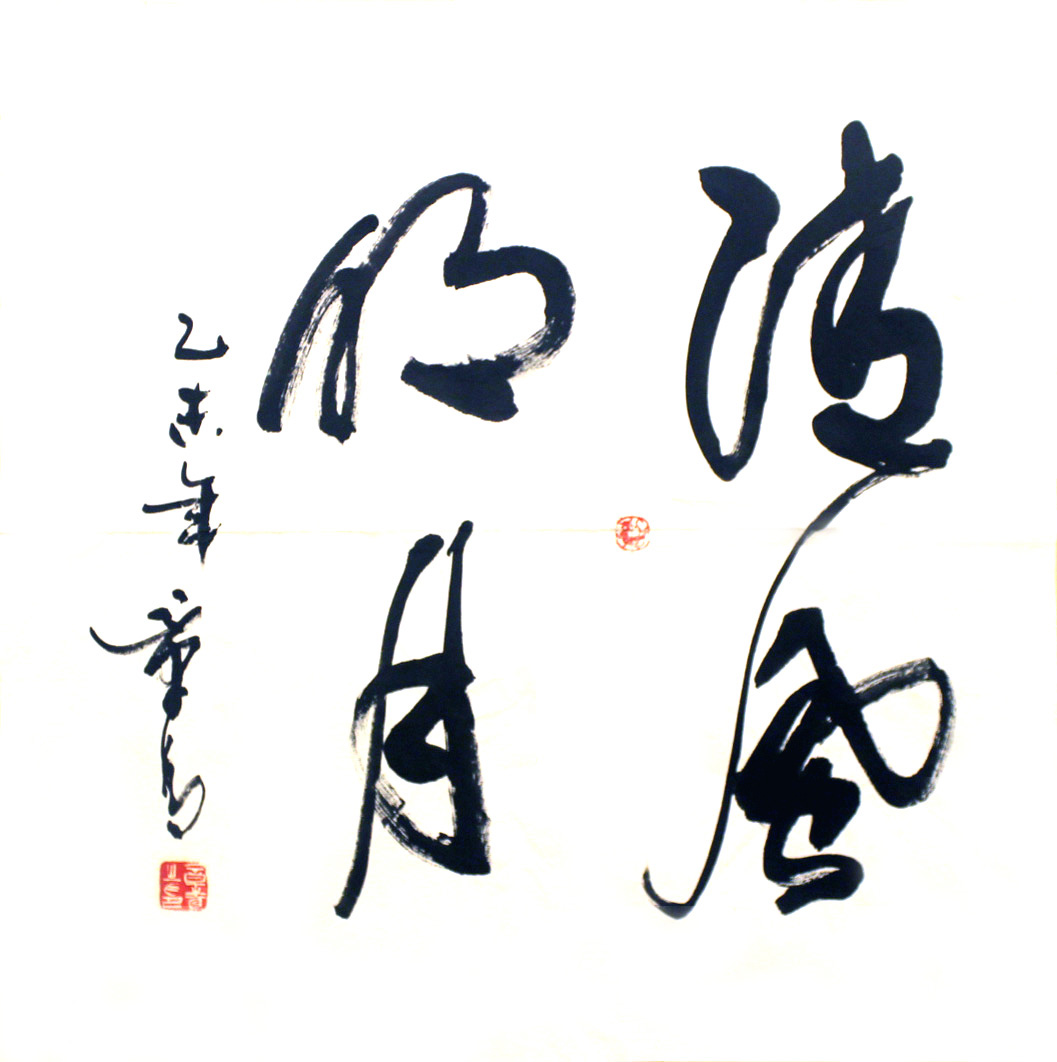 清风
明月
乙未年